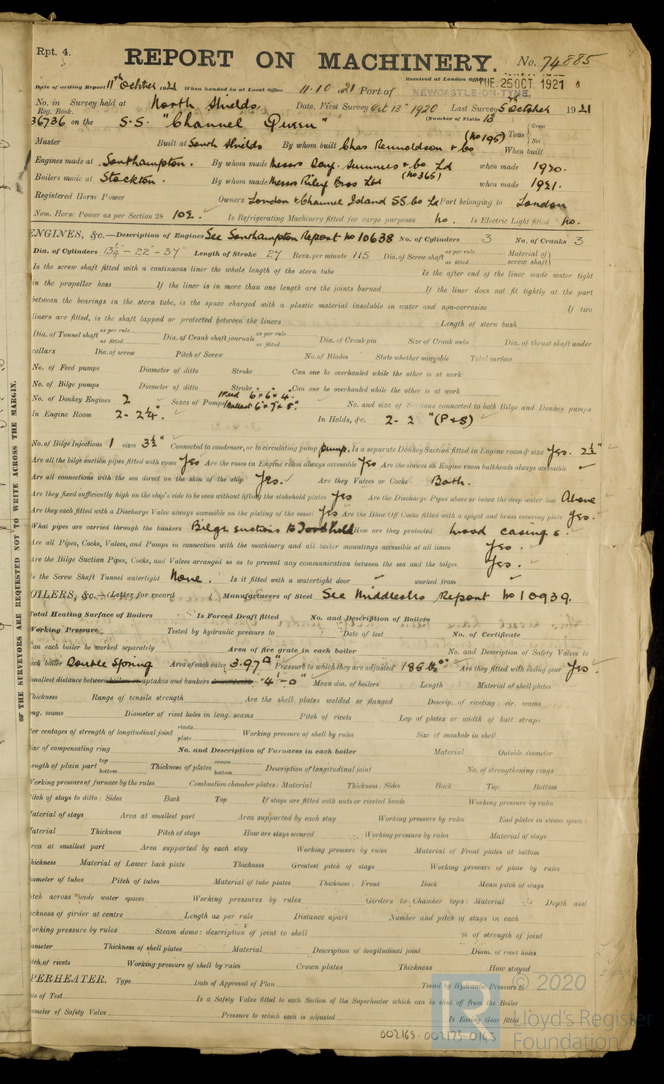 Rpt. 4.
REPORT ON MACHINERY.
No. 74885
Received at London Office TUE. 25 OCT. 1921
Date of writing Report 11th October 1921 When handed in at Local Office 11.10.21 Port of NEWCASTLE-ON-TYNE.
No. in Survey held at North Shields. Date, First Survey Oct 13th 1920 Last Survey 5 October 1921
Reg. Book. (Number of Visits 13
36736 on the S.S. "Channel Queen" Tons Gross Net
Master Built at South Shields By whom built Chas Rennoldson & Co (No 195) When built
Engines made at Southampton. By whom made Messrs Day. Summers & Co. Ld when made 1920.
Boilers made at Stockton. By whom made Messrs Riley Bros Ltd (No 365) when made 1921.
Registered Horse Power Owners London & Channel Island S.S. Co Ld Port belonging to London
Nom. Horse Power as per Section 28 102. Is Refrigerating Machinery fitted for cargo purposes No. Is Electric Light fitted No.
ENGINES, &c.—Description of Engines See Southampton Report No 10638 No. of Cylinders 3 No. of Cranks 3
Dia. of Cylinders 13½"-22"-37" Length of Stroke 27 Revs. per minute 115 Dia. of Screw shaft as per rule as fitted Material of screw shaft
Is the screw shaft fitted with a continuous liner the whole length of the stern tube Is the after end of the liner made water tight
in the propeller boss If the liner is in more than one length are the joints burned If the liner does not fit tightly at the part
between the bearings in the stern tube, is the space charged with a plastic material insoluble in water and non-corrosive If two
liners are fitted, is the shaft lapped or protected between the liners Length of stern bush
Dia. of Tunnel shaft as per rule as fitted Dia. of Crank shaft journals as per rule as fitted Dia. of Crank pin Size of Crank webs Dia. of thrust shaft under
collars Dia. of screw Pitch of Screw No. of Blades State whether moveable Total surface
No. of Feed pumps Diameter of ditto Stroke Can one be overhauled while the other is at work
No. of Bilge pumps Diameter of ditto Stroke Can one be overhauled while the other is at work
No. of Donkey Engines 2 Sizes of Pumps Feed 6"×6"×4" Ballast 6"×7"×8" No. and size of Suctions connected to both Bilge and Donkey pumps
In Engine Room 2 - 2¼" In Holds, &c. 2 - 2" (P & S)
No. of Bilge Injections 1 sizes 3½" Connected to condenser, or to circulating pump pump. Is a separate Donkey Suction fitted in Engine room & size Yes. 2½"
Are all the bilge suction pipes fitted with roses Yes Are the roses in Engine room always accessible Yes Are the sluices on Engine room bulkheads always accessible
Are all connections with the sea direct on the skin of the ship Yes. Are they Valves or Cocks Both.
Are they fixed sufficiently high on the ship's side to be seen without lifting the stokehold plates Yes Are the Discharge Pipes above or below the deep water line Above
Are they each fitted with a Discharge Valve always accessible on the plating of the vessel Yes Are the Blow Off Cocks fitted with a spigot and brass covering plate Yes.
What pipes are carried through the bunkers Bilge suctions to Forehold How are they protected Wood casings.
Are all Pipes, Cocks, Valves, and Pumps in connection with the machinery and all boiler mountings accessible at all times Yes.
Are the Bilge Suction Pipes, Cocks, and Valves arranged so as to prevent any communication between the sea and the bilges Yes.
Is the Screw Shaft Tunnel watertight None. Is it fitted with a watertight door worked from
OILERS, &c.—(Letter for record Manufacturers of Steel See Middlesbro Report No 10939.
Total Heating Surface of Boilers Is Forced Draft fitted No. and Description of Boilers
Working Pressure Tested by hydraulic pressure to Date of test No. of Certificate
Can each boiler be worked separately Area of fire grate in each boiler No. and Description of Safety Valves to
each boiler Double Spring Area of each valve 3.97" Pressure to which they are adjusted 185 lbs Are they fitted with easing gear Yes.
Smallest distance between uptakes and bunkers 4'-0" Mean dia. of boilers Length Material of shell plates
Thickness Range of tensile strength Are the shell plates welded or flanged Descrip. of riveting: cir. seams
long. seams Diameter of rivet holes in long. seams Pitch of rivets Lap of plates or width of butt straps
Per centages of strength of longitudinal joint rivets plate Working pressure of shell by rules Size of manhole in shell
Size of compensating ring No. and Description of Furnaces in each boiler Material Outside diameter
Length of plain part top bottom Thickness of plates crown bottom Description of longitudinal joint No. of strengthening rings
Working pressure of furnace by the rules Combustion chamber plates: Material Thickness: Sides Back Top Bottom
Pitch of stays to ditto: Sides Back Top If stays are fitted with nuts or riveted heads Working pressure by rules
Material of stays Area at smallest part Area supported by each stay Working pressure by rules End plates in steam space:
Material Thickness Pitch of stays How are stays secured Working pressure by rules Material of stays
Area at smallest part Area supported by each stay Working pressure by rules Material of Front plates at bottom
Thickness Material of Lower back plate Thickness Greatest pitch of stays Working pressure of plate by rules
Diameter of tubes Pitch of tubes Material of tube plates Thickness: Front Back Mean pitch of stays
Pitch across wide water spaces Working pressures by rules Girders to Chamber tops: Material Depth and
thickness of girder at centre Length as per rule Distance apart Number and pitch of stays in each
Working pressure by rules Steam dome: description of joint to shell % of strength of joint
Diameter Thickness of shell plates Material Description of longitudinal joint Diam. of rivet holes
Pitch of rivets Working pressure of shell by rules Crown plates Thickness How stayed
PERHEATER. Type Date of Approval of Plan Tested by Hydraulic Pressure to
Date of Test Is a Safety Valve fitted to each Section of the Superheater which can be shut off from the Boiler
Diameter of Safety Valve Pressure to which each is adjusted Is Easing Gear fitted
OF THE SURVEYORS ARE REQUESTED NOT TO WRITE ACROSS THE MARGIN.
002165-002175-0143
© 2020
Lloyd's Register
Foundation